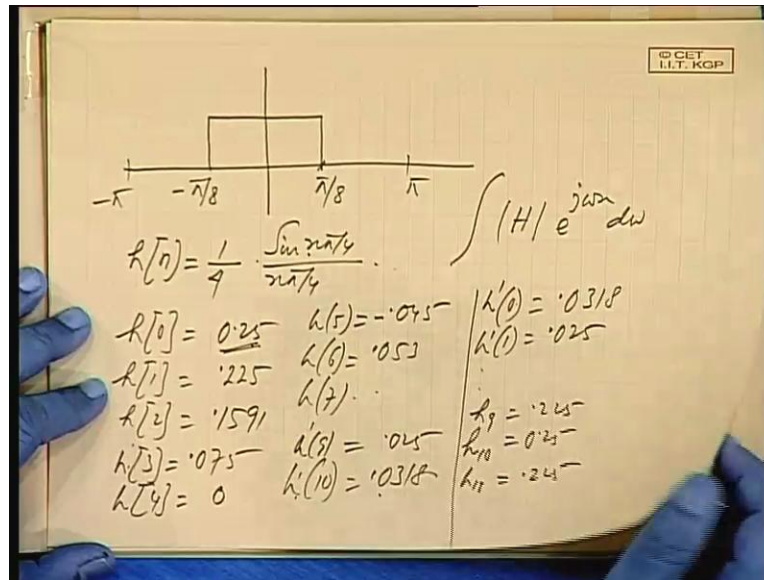 © CET
I.I.T. KGP
-π -π/8 π/8 π
∫ |H| e^{jωn} dω
h[n] = 1/4 · Sin nπ/4 / nπ/4 .
h[0] = 0.25
h[1] = .225
h[2] = .1591
h[3] = .075
h[4] = 0
h(5) = -.045
h(6) = .053
h(7) . .
h'(9) = .025
h'(10) = .0318
h'(0) = .0318
h'(1) = .025
h9 = .225
h10 = 0.25
h11 = .225